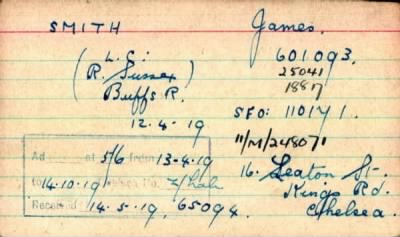 SMITH James.
L.C: 601093.
(R. Sussex) 25041
Buffs R. 18817
SFO: 110141.
12.4.19
11/M/248071
Ad at 5/6 from 13-4-19
to 14.10.19 No.
16. Seaton St.
Kings Rd.
Chelsea.
Received 14.5.19, 65094.